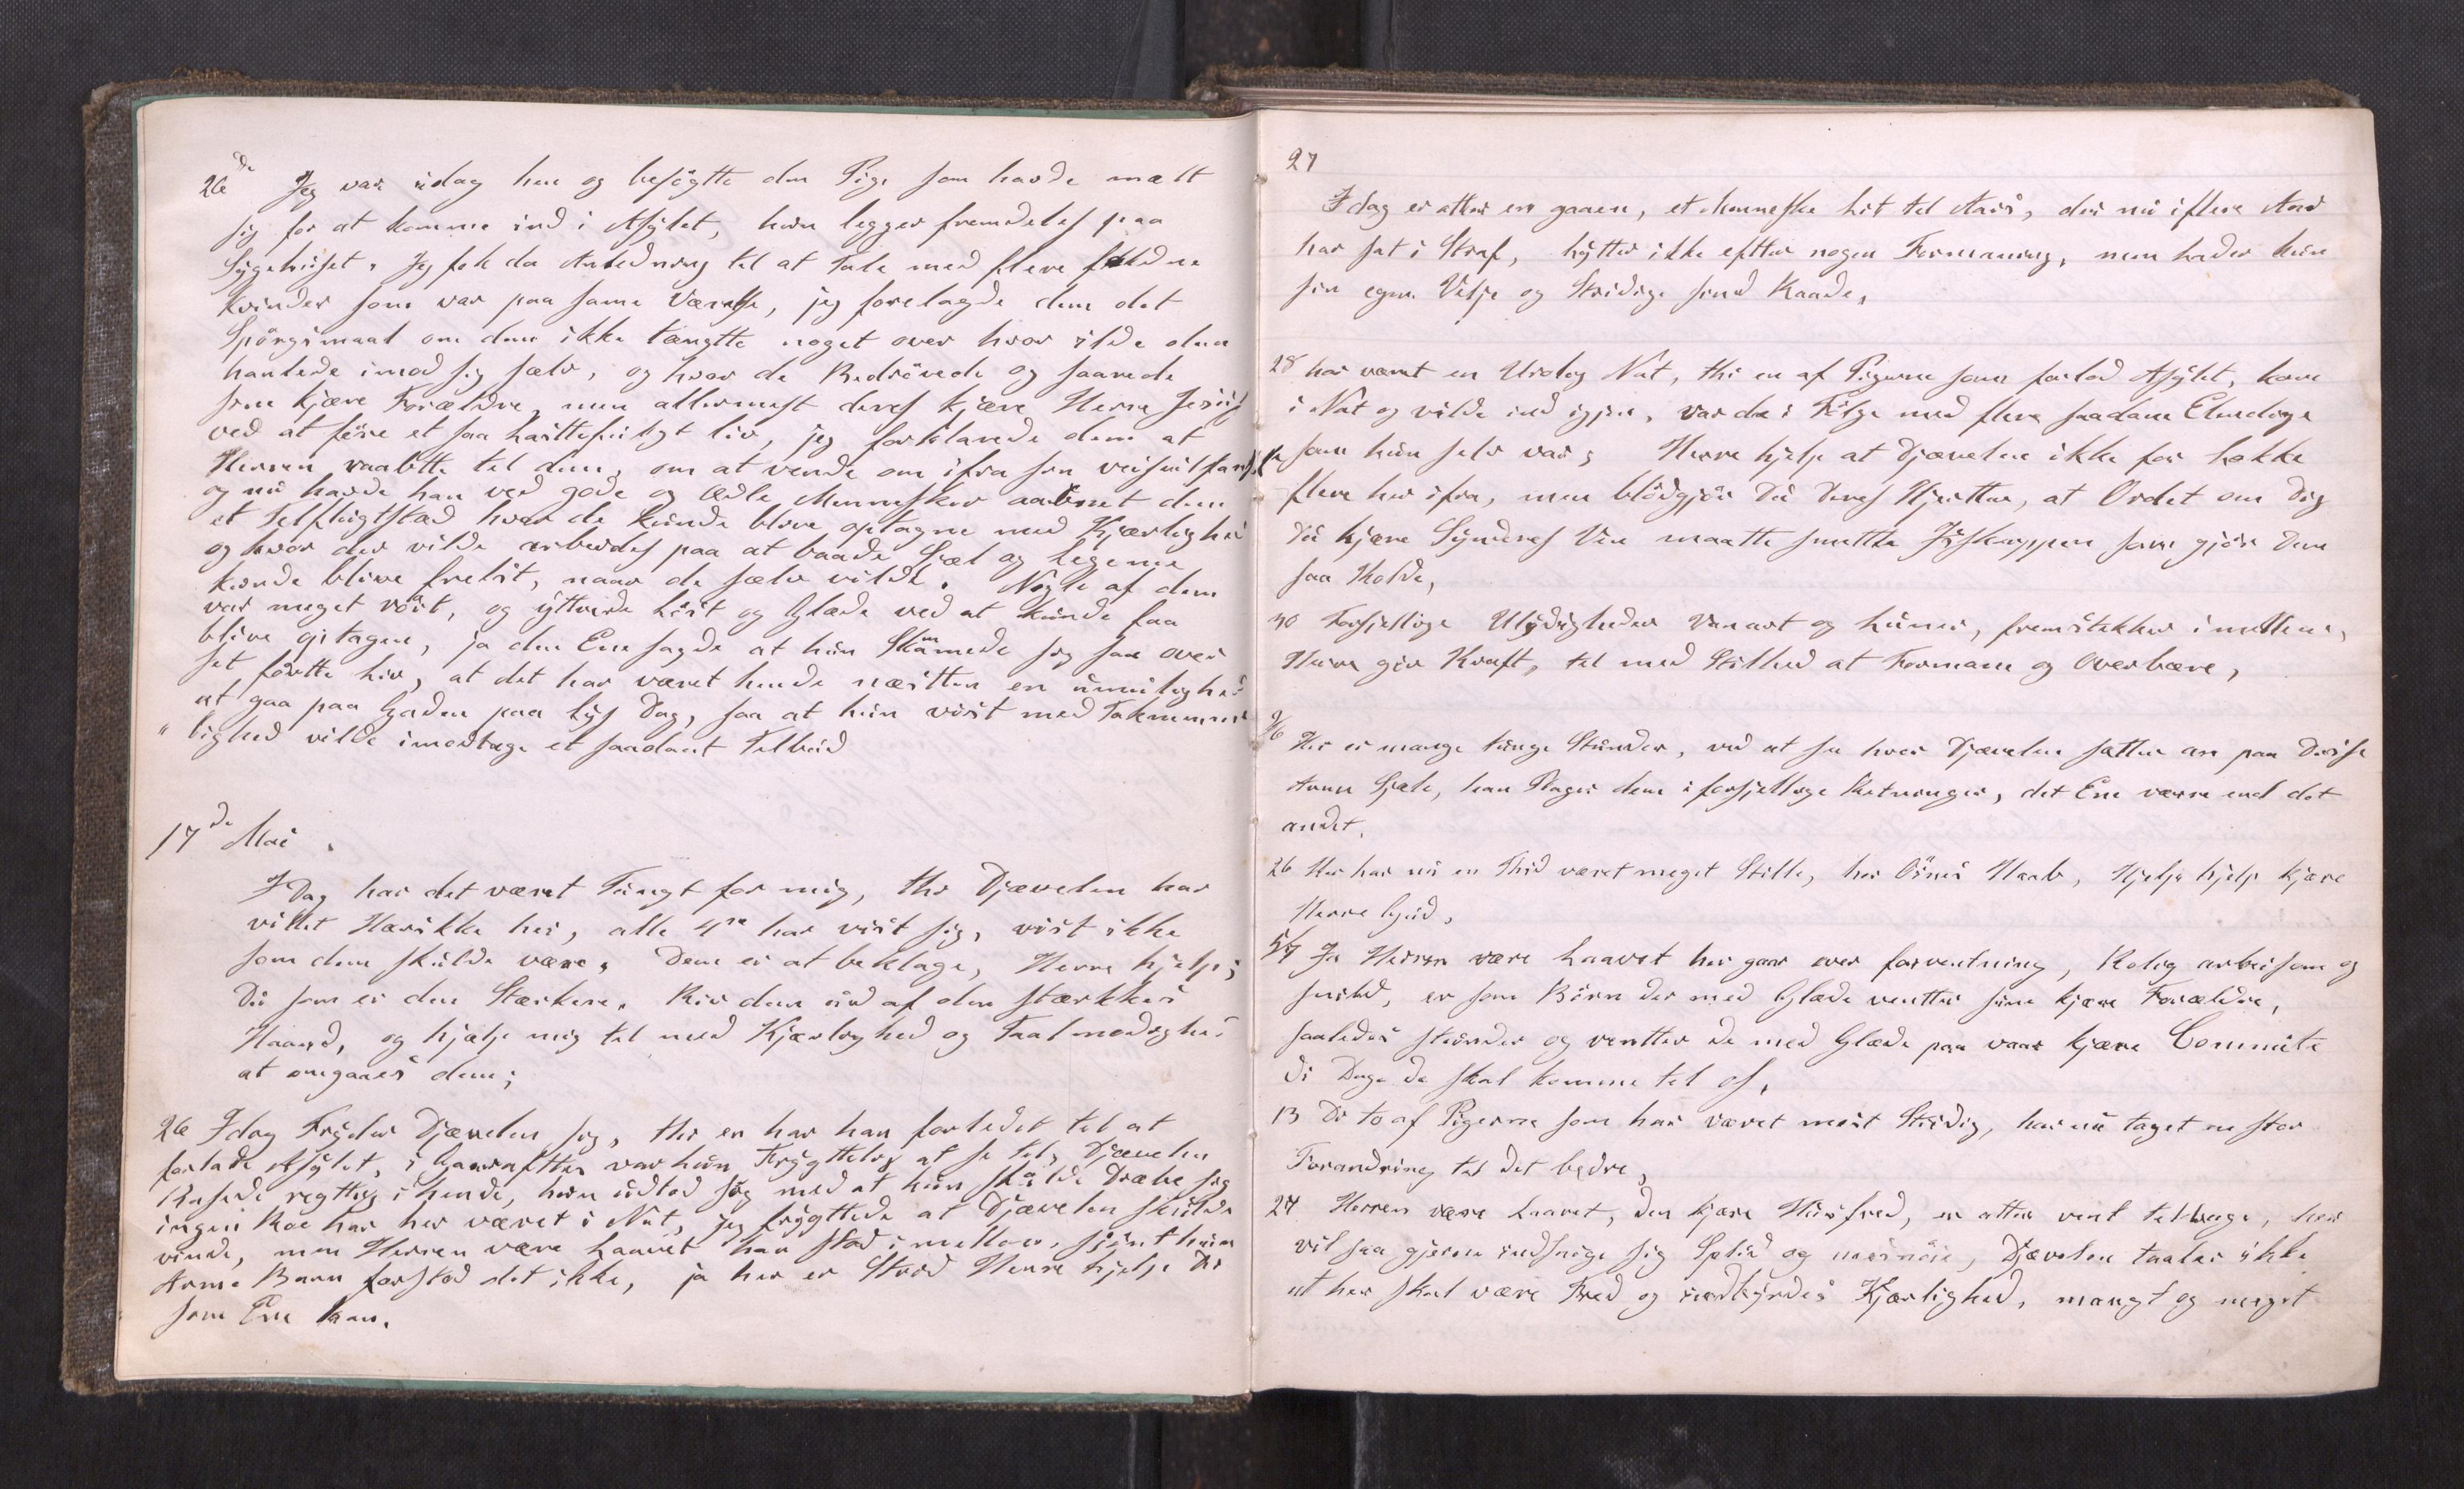 26de Jeg var idag hen og besögtte den Pige som havde mælt
sig for at komme ind i Asÿlet, hun legger fremdeles paa
Sygehuset. Jeg fek da Anledning til at Tale med flere faldne
kvinder som var paa same Værelse, jeg forelagde dem det
Spörgsmaal om dem ikke tængtte noget over hvor ilde den
hanlede imod sig sælv, og hvor de Bedrövede og saarede
sine kjære Forældre, men allermest deres kjære Herre Jesus
ved at före et saa lastefuldgt liv, jeg forklarede dem at
Herren raabtte til dem, om at vende om ifra sin
og nu havde han ved gode og Ædle Mennesker aabnet dem
et Telflugtstad hvor de kunde blive optagne med Kjærlighed
og hvor der vilde arbeides paa at baade Sjæl og Legeme
kunde blive frelst, naar de sælv vilde. Nogle af dem
var meget rört, og ÿtterde Löst og Glæde ved at kunde faa
blive gitagen, ja den Ene sagde at hun Skamede sig saa over
sit förtte liv, at det har været hende næstten en umulighed
at gaa paa Gaden paa Lÿs Dag, saa at hun vist med Taknemme
" lighed vilde imodtage et saadant Telbud
17de Mai.
I Dag har det været Tungt for mig, thi Djævelen har
villet Hærikke her, alle 4re har vist sig, vist ikke
som dem skulde være. Dem er at beklage, Herre hjelp;
Du som er den Stærkere. Riv dem ud af den stærkkes
Haand, og hjælp mig til med Kjærlighed og Taalmodighed
at omgaaes dem;
26 Idag Frÿder Djævelen sig, thi en har han forledet til at
forlade Asÿlet, i Gaaraftter var hun Frÿgttelig at se til, Djævelen
Rasede regttig i hende, hun udlod sig med at hun skulde Dræbe sig
ingen Roe har her været i Nat, jeg frÿgttede at Djævelen skulde
vinde, men Herren være Laavet han stod imellem, sjönt hun
Arme Barn forstod det ikke, ja her er Strid Herre hjelp Du
som Ene kan.
27
Idag er atter en gaaen, et Menneske hit til Aars, der nu i flere Aar
har sat i Straf, lÿtter ikke eftter nogen Formaning, men lader kun
sin egen Vilje og Stridige sind Raade,
28 har været en Urolig Nat, thi en af Pigerne som forlod Asÿlet, kom
i Nat og vilde ind igjen, var da i Fölge med flere saadane Elendige
som hun selv var; Herre hjelp at Djævelen ikke for Lokke
flere her ifra, men blödgjör Du Deres Hjertter, at Ordet om Dig
Du kjære Sÿnderes Ven maatte smeltte Isskorppen som gjör Dem
saa Kolde,
30 Forsjellige Ulÿdigheder Vanart og Luner, fremstikker imellem,
Herre giv Kraft, til med Stilhed at Formane og Overbære,
2/6 Her er mange tunge Stunder, ved at se hvor Djævelen sætter an paa Disse
Arme Sjæle, han Plager dem i forsjellige Retninger, det Ene værre end det
andet.
26 Her har nu en Thid været meget Stille, her Öines Haab, Hjelp hjelp kjære
Herre Gud,
5/7 Ja Herren være Laavet her gaar over forventning, Rolig arbeisom og
snild, er som Börn der med Glæde ventter sine kjære Forældre,
saaledes stunder og ventter de med Glæde paa vaar kjære Committe
di Dage de skal komme til os,
13 De to af Pigerne som har været mest Stridig, har nu taget en stor
Forandring til det bedre,
27 Herren være Laavet, den kjære Husfred, er atter vent telbage, her
vil saa gjerne indsnige sig Splid og misnöie, Djævelen taaler ikke
at her skal være Fred og indbÿrdes Kjærlighed, mangt og meget